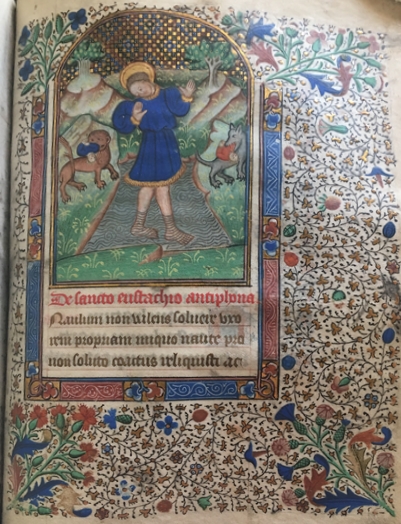 De sancto eustachio antiphona
Naulum non valens soluere uxo
rem propriam iniquo naute pro
non solito coactus reliquisti ac